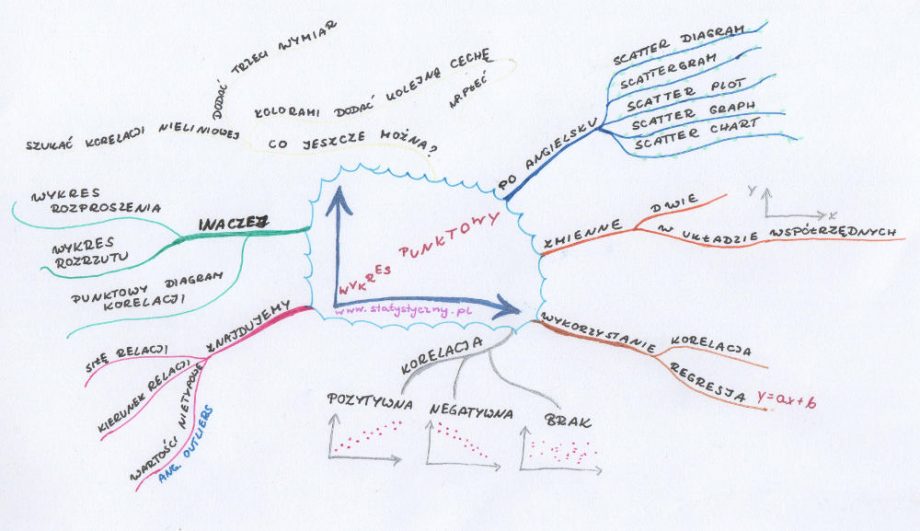 WYKRES PUNKTOWY
www.statystyczny.pl
PO ANGIELSKU
SCATTER DIAGRAM
SCATTERGRAM
SCATTER PLOT
SCATTER GRAPH
SCATTER CHART
ZMIENNE
DWIE
W UKŁADZIE WSPÓŁRZĘDNYCH
Y
X
WYKORZYSTANIE
KORELACJA
REGRESJA y=ax+b
KORELACJA
POZYTYWNA
NEGATYWNA
BRAK
ZNAJDUJEMY
SIŁĘ RELACJI
KIERUNEK RELACJI
WARTOŚCI NIETYPOWE
ANG. OUTLIERS
INACZEJ
WYKRES
ROZPROSZENIA
WYKRES
ROZRZUTU
PUNKTOWY DIAGRAM
KORELACJI
CO JESZCZE MOŻNA?
SZUKAĆ KORELACJI NIELINIOWEJ
DODAĆ TRZECI WYMIAR
KOLORAMI DODAĆ KOLEJNĄ CECHĘ
NP. PŁEĆ